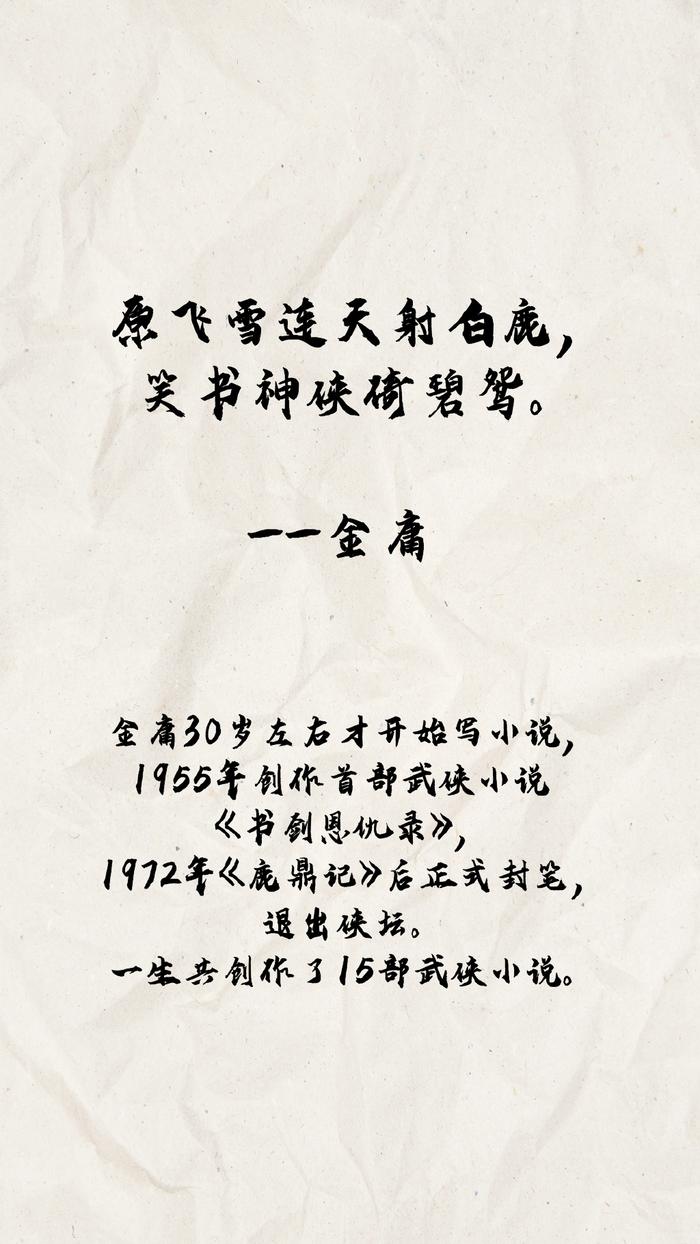 原飞雪连天射白鹿，
笑书神侠倚碧鸳。
一一金庸
金庸30岁左右才开始写小说，
1955年创作首部武侠小说
《书剑恩仇录》，
1972年《鹿鼎记》后正式封笔，
退出侠坛。
一生共创作了15部武侠小说。